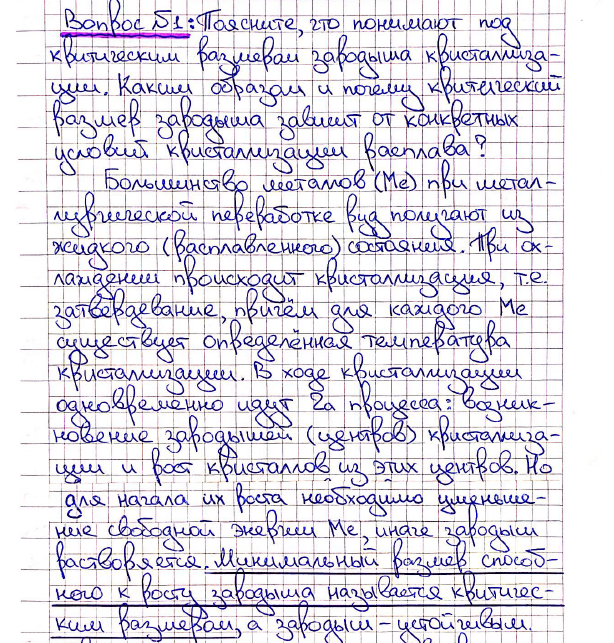 Вопрос Б1: Поясните, что понимают под
критическим размером зародыша кристаллиза-
ции. Каким образом и почему критический
размер зародыша зависит от конкретных
условий кристаллизации расплава?
Большинство металлов (Ме) при метал-
лургической переработке руд получают из
жидкого (расплавленного) состояния. При ох-
лаждении происходит кристаллизация, т.е.
затвердевание, причём для каждого Ме
существует определённая температура
кристаллизации. В ходе кристаллизации
одновременно идут 2а процесса: возник-
новение зародышей (центров) кристаллиза-
ции и рост кристаллов из этих центров. Но
для начала их роста необходимо уменьше-
ние свободной энергии Ме, иначе зародыш
растворяется. Минимальный размер способ-
ного к росту зародыша называется критичес-
ким размером, а зародыш - устойчивым.